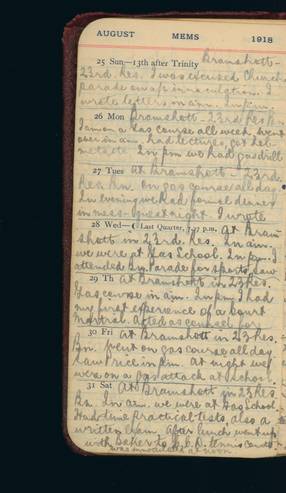 AUGUST MEMS 1918
25 Sun—13th after Trinity Bramshott—
23rd. Res. I was excused Church
parade on a/c inoculation. I
wrote letters in a.m. In p.m.
26 Mon Bramshott—23rd Res Bn.
I am on a Gas course all week. Went
over in a.m. had lectures, got hel-
mets etc. In p.m we had gas drill
27 Tues At Bramshott—23rd.
Res. Bn. On gas course all day.
In evening we had formal dinner
in mess. guest night. I wrote
28 Wed—☾ Last Quarter, 7.27 p.m. At Bram
shott in 23rd. Res. In a.m.
we were at Gas School. In p.m. I
attended Bn. Parade for sports, saw
29 Th At Bramshott in 23 Res.
Gas course in a.m. In p.m I had
my first experience of a court
martial. Acted as counsel for
30 Fri At Bramshott in 23 Res.
Bn. Went on gas course all day
Saw Price in p.m. At night we
were on a gas attack at school.
31 Sat At Bramshott in 23 Res.
Bn. In a.m. we were at Gas School
Had some practical tests, also a
written exam. After lunch went up
with Baker to tennis courts
was inoculated at noon